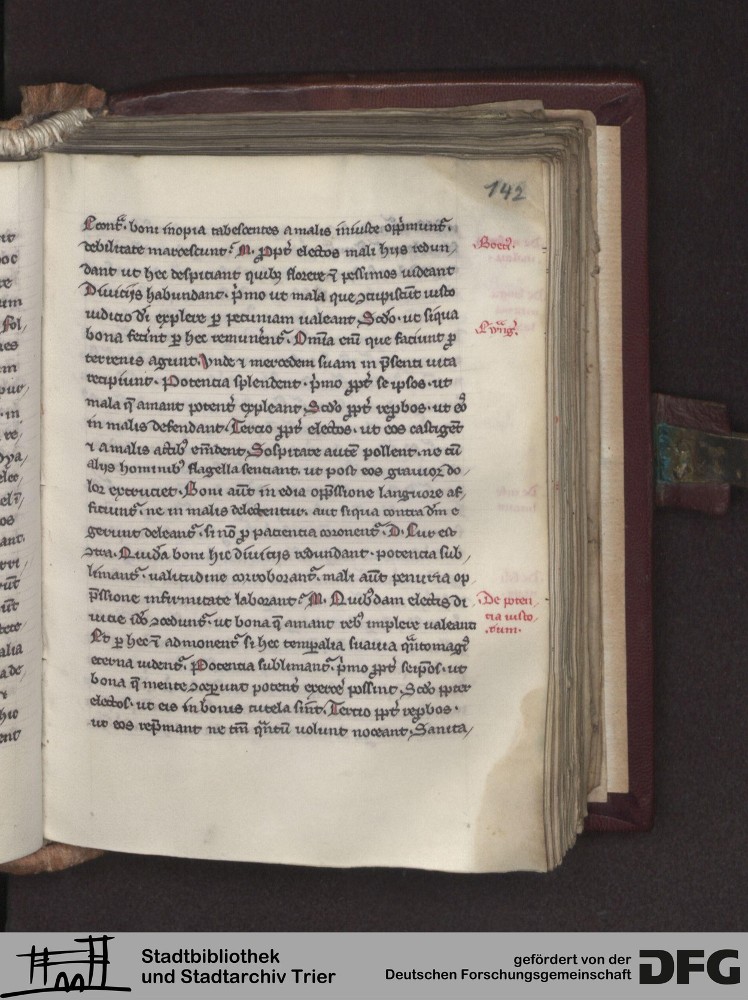 142
Econt̄. boni inopia tabescentes a malis iniuste opp̄munt̄.
debilitate marcescunt. M. Ppt̄ electos mali hijs redun/
dant ut hec despiciant quib; florere ⁊ pessimos uideant
Diuicijs habundant. p̄mo ut mala que ɔcupiscūt iusto
iudicio dī explere p pecuniam ualeant. Scđo. ut siqua
bona fecīnt p hec remunēnt̄. Om̄ia eni que faciunt p
terrenis agunt. Vnde ⁊ mercedem suam in p̄senti uita
recipiunt. Potencia splendent. p̄mo ppt̄ se ipsos. ut
mala q̄ amant potent̄ expleant. Scđo ppt̄ rep̄bos. ut eoꝝ
in malis defendant. Tercio ppt̄ electos. ut eos castigēt
⁊ a malis actib; em̄dent. Sospitate autē pollent. ne cū
alijs hominib; flagella sentiant. ut post eos grauior do/
lor excruciet. Boni aūt in edia opp̄ssione languore af/
ficiunt̄. ne in malis delectentur. aut siqua contra dm̄ e
gerunt deleant̄. si nō p paciencia coronent̄. D. Cur est
ɔtra. Quidā boni hic diuicijs redundant. potencia sub/
limant̄. ualitudine corroborant̄. mali aūt penuria op/
p̄ssione infirmitate laborant? M. Quibdam electis di
uicie iō ɔcedunt̄. ut bona q̄ amant reb; implere ualeant
Et p hec ⁊ admonent̄ si hec temp̄alia suauia q̄ntomagꝭ
eterna uident̄. Potencia sublimant̄. p̄mo ppt̄ seip̄os. ut
bona q̄ mente ɔceperunt potent̄ exerce possint. Scđo ppter
electos. ut eis in bonis tutela sint. Tercio ppt̄ rep̄bos.
ut eos rep̄mant ne tm̄ q̄ntū uolunt noceant. Sanita/
De poten
tia iusto
rum.
Stadtbibliothek
und Stadtarchiv Trier
gefördert von der
Deutschen Forschungsgemeinschaft
DFG